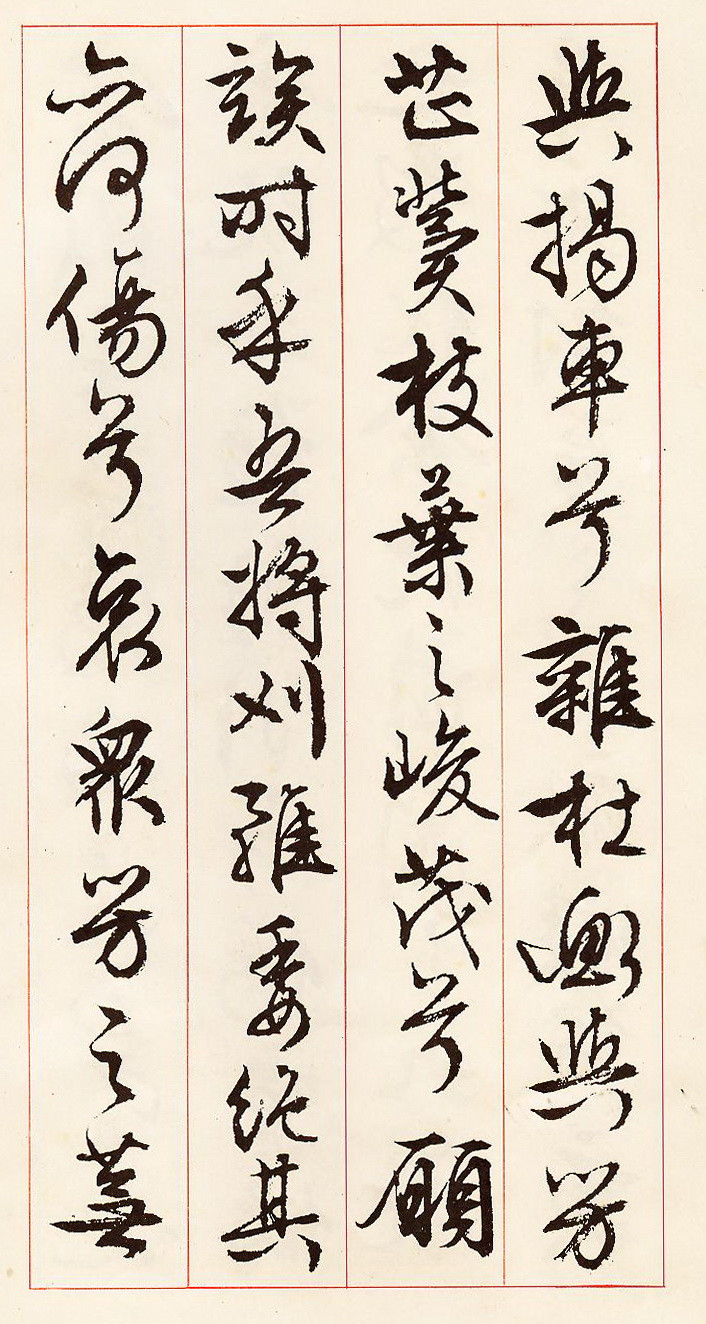 與揭車兮雜杜衡與芳
芷冀枝葉之峻茂兮願
竢時乎吾將刈雖委絕其
亦何傷兮哀衆芳之蕪